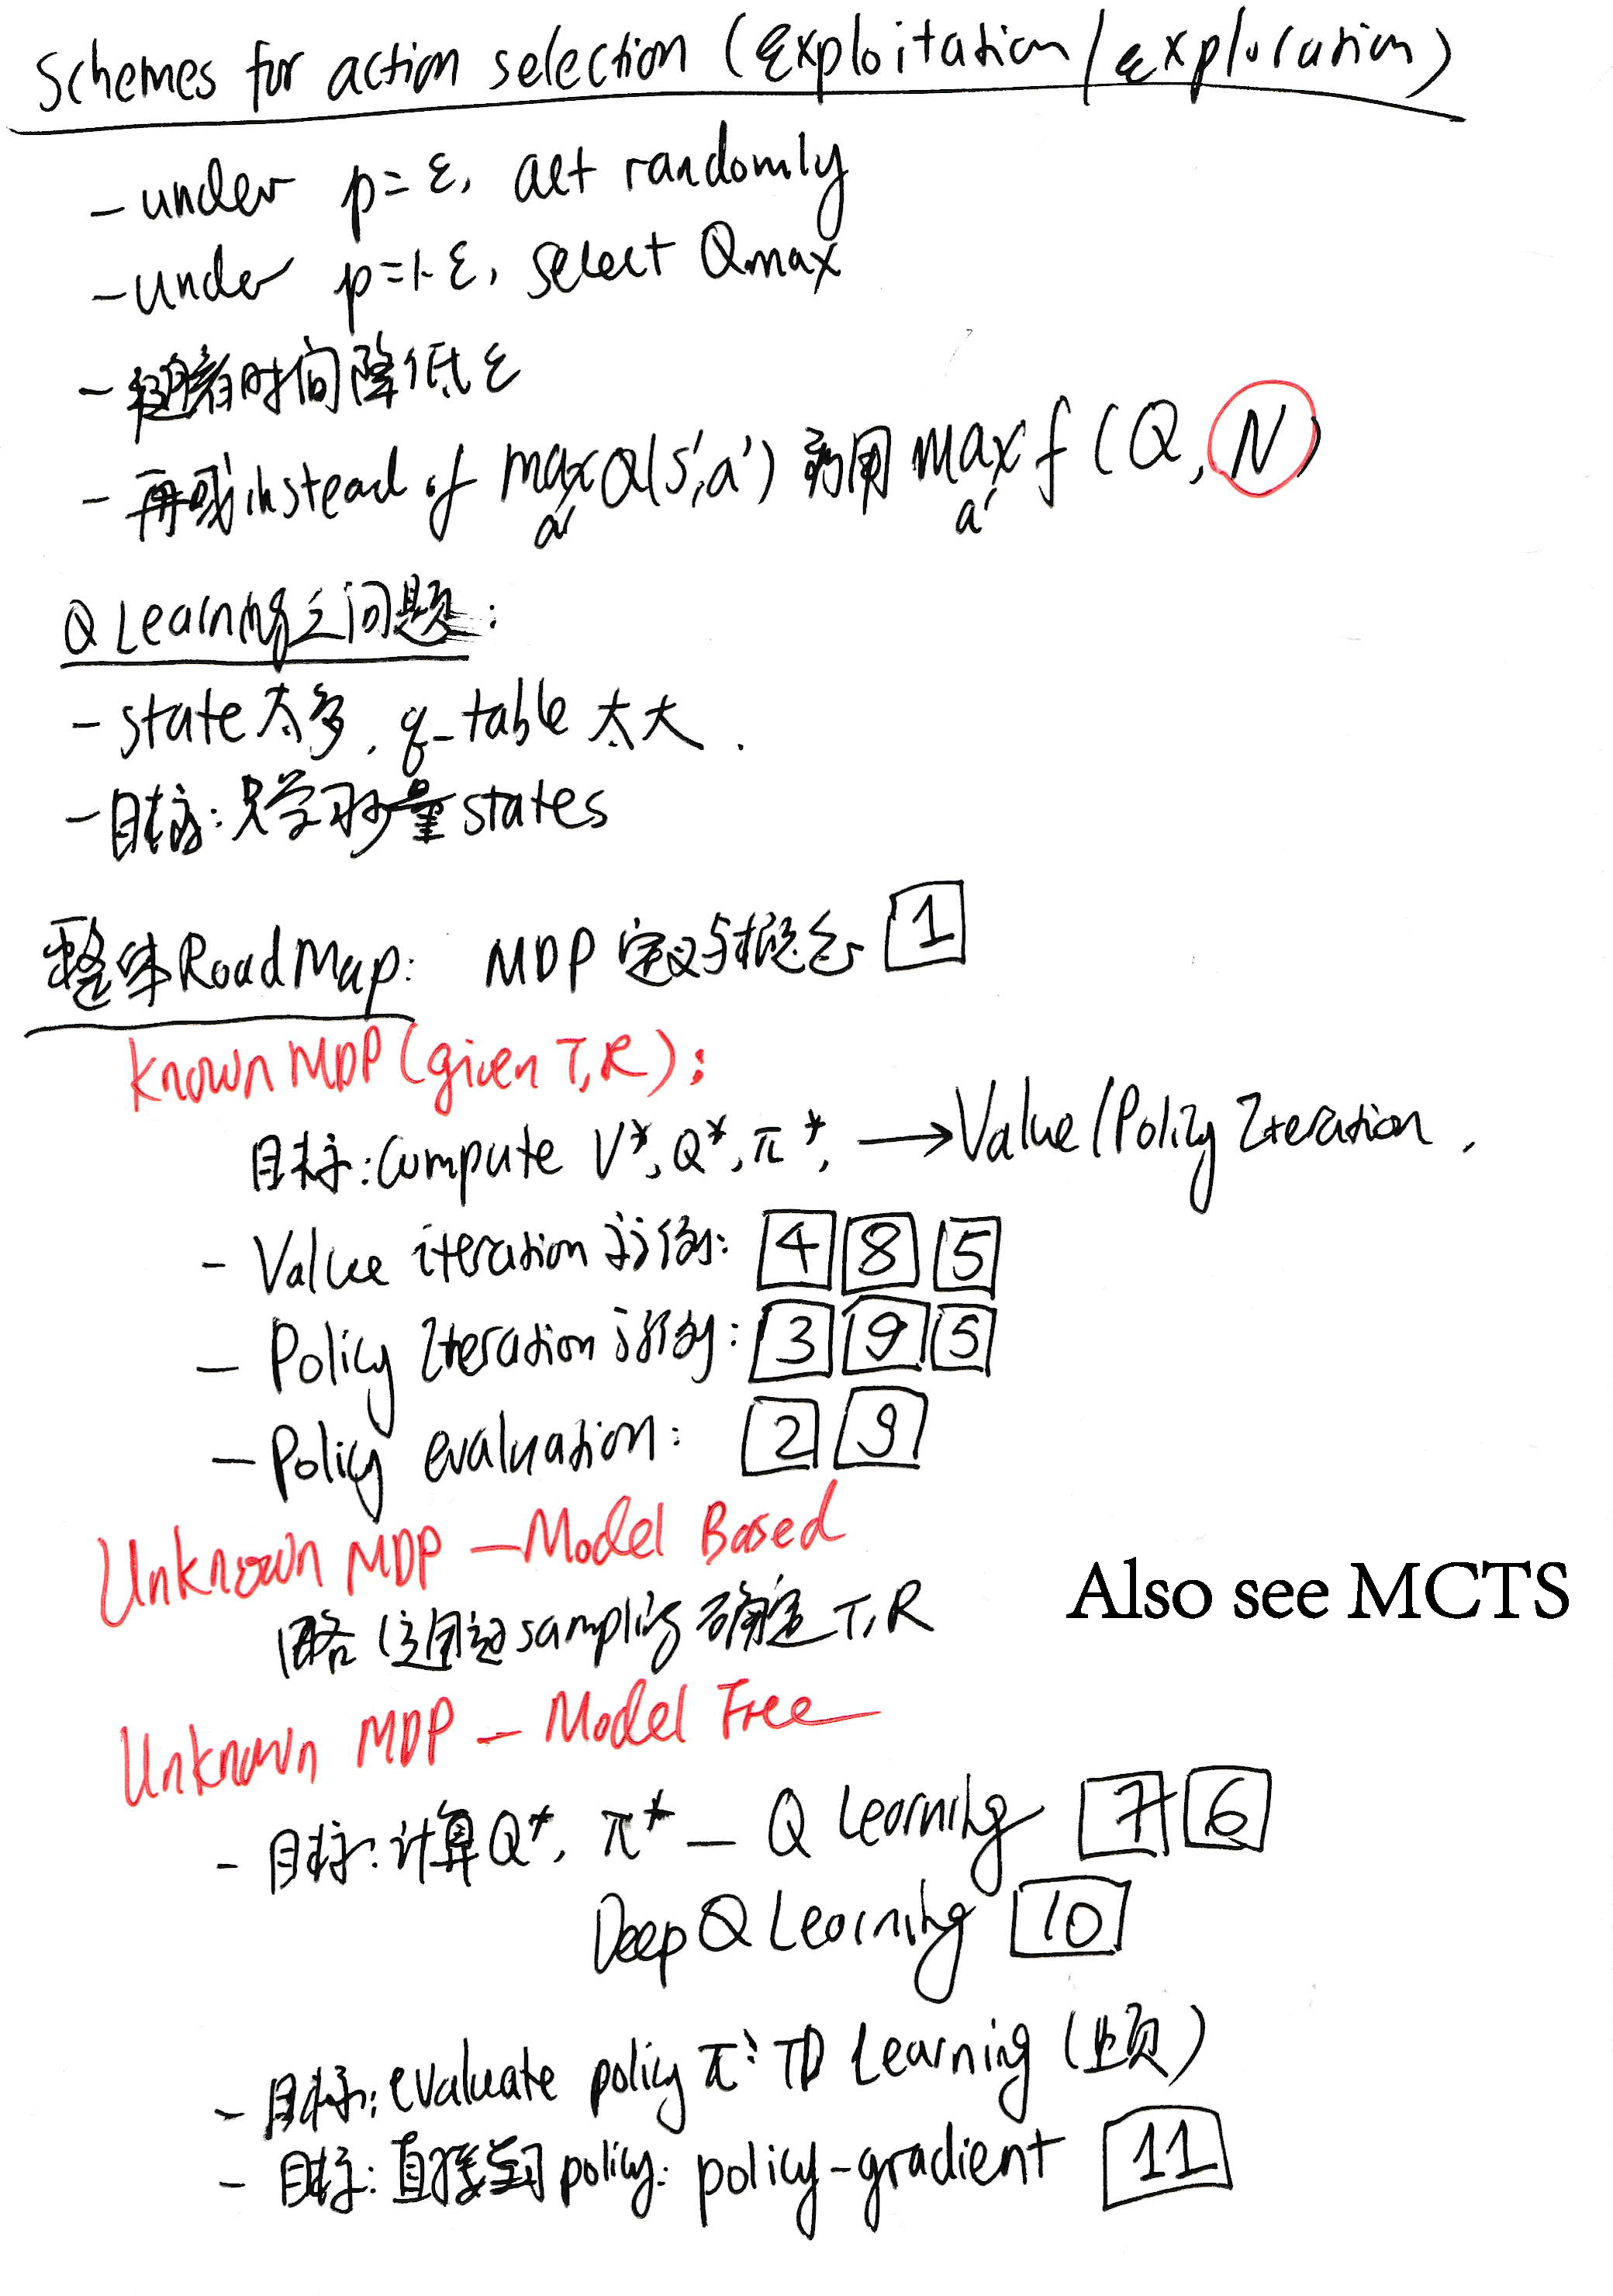 Schemes for action selection (Exploitation/exploration)
- under p=ε, act randomly
- under p=1-ε, select Qmax
- 随着时间降低ε
- 再或instead of max Q(s',a') 而用 max f(Q, N)
a' a'
Q Learning之问题:
- state太多, q-table 太大.
- 目标: 只学习少量states
整体RoadMap: MDP 定义与概念 1
Known MDP (given T,R):
目标: compute V*, Q*, π*, →Value/Policy Iteration.
- Value iteration 举例: 4 8 5
- Policy Iteration 举例: 3 9 5
- Policy evaluation: 2 9
Unknown MDP - Model Based
略 (通过sampling确定T,R
Also see MCTS
Unknown MDP - Model Free
- 目标: 计算Q*, π* - Q Learning 7 6
Deep Q Learning 10
- 目标: evaluate policy π: TD Learning (上页)
- 目标: 直接学习policy: policy-gradient 11